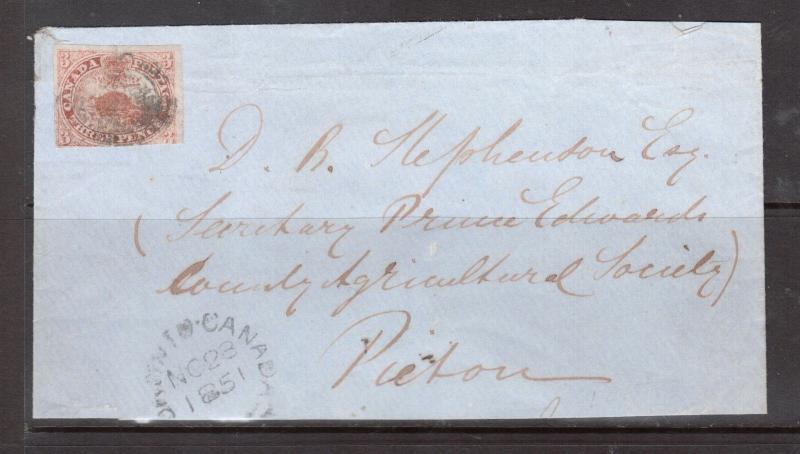 3 CANADA POSTAGE 3
3 THREE PENCE 3
D. B. Stephenson Esq.
(Secretary Prince Edwards
County Agricultural Society)
Picton
TORONTO·CANADA
NO 28
1851